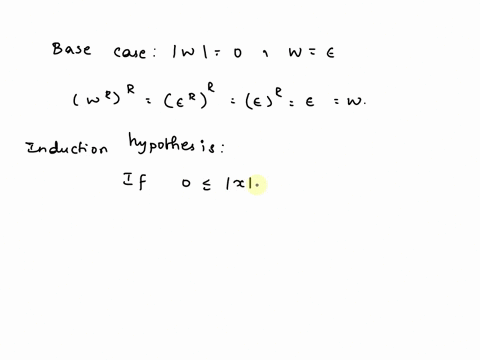 Base case: |w| = 0, w = ϵ
(w^R)^R = (ϵ^R)^R = (ϵ)^R = ϵ = w.
Induction hypothesis:
If 0 ≤ |x|